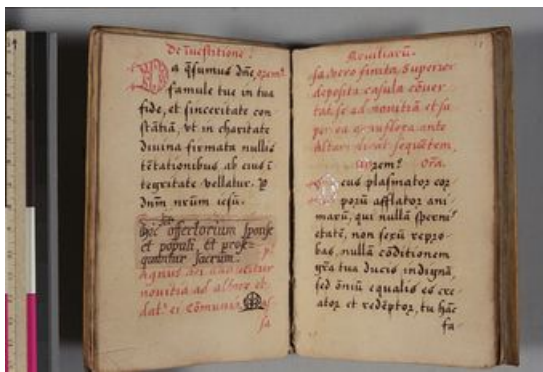 De īuestitione.
Da q̄sumus dn̄e,
famule tue in tua
fide, et sinceritate con
stātiā, vt in charitate
diuina firmata nullis
tētationibus ab eius ī
tegritate vellatur. P
dn̄m nr̄um iesū.
hic offertorium sponse
et populi, et prose=
quantur sacrum.
Agnus dei
nouitia ad altare et
dat.^r ei Cōmunio
sa
Nouitiarū.
sa vero finita, Superior
deposita casula cōuer
tat se ad nouitiā et su
per ea genuflexa ante
Altare dicat sequētem,
Orem^9 Or̄a.
Deus plasmator cor
porū afflator ani
marū, qui nullā sperni^9
etatē, non sexū repro
bas, nullā cōditionem
gr̄a tua ducis indignā,
sed om̄iū equalis es cre
ator et redēptor, tu hāc
fa-